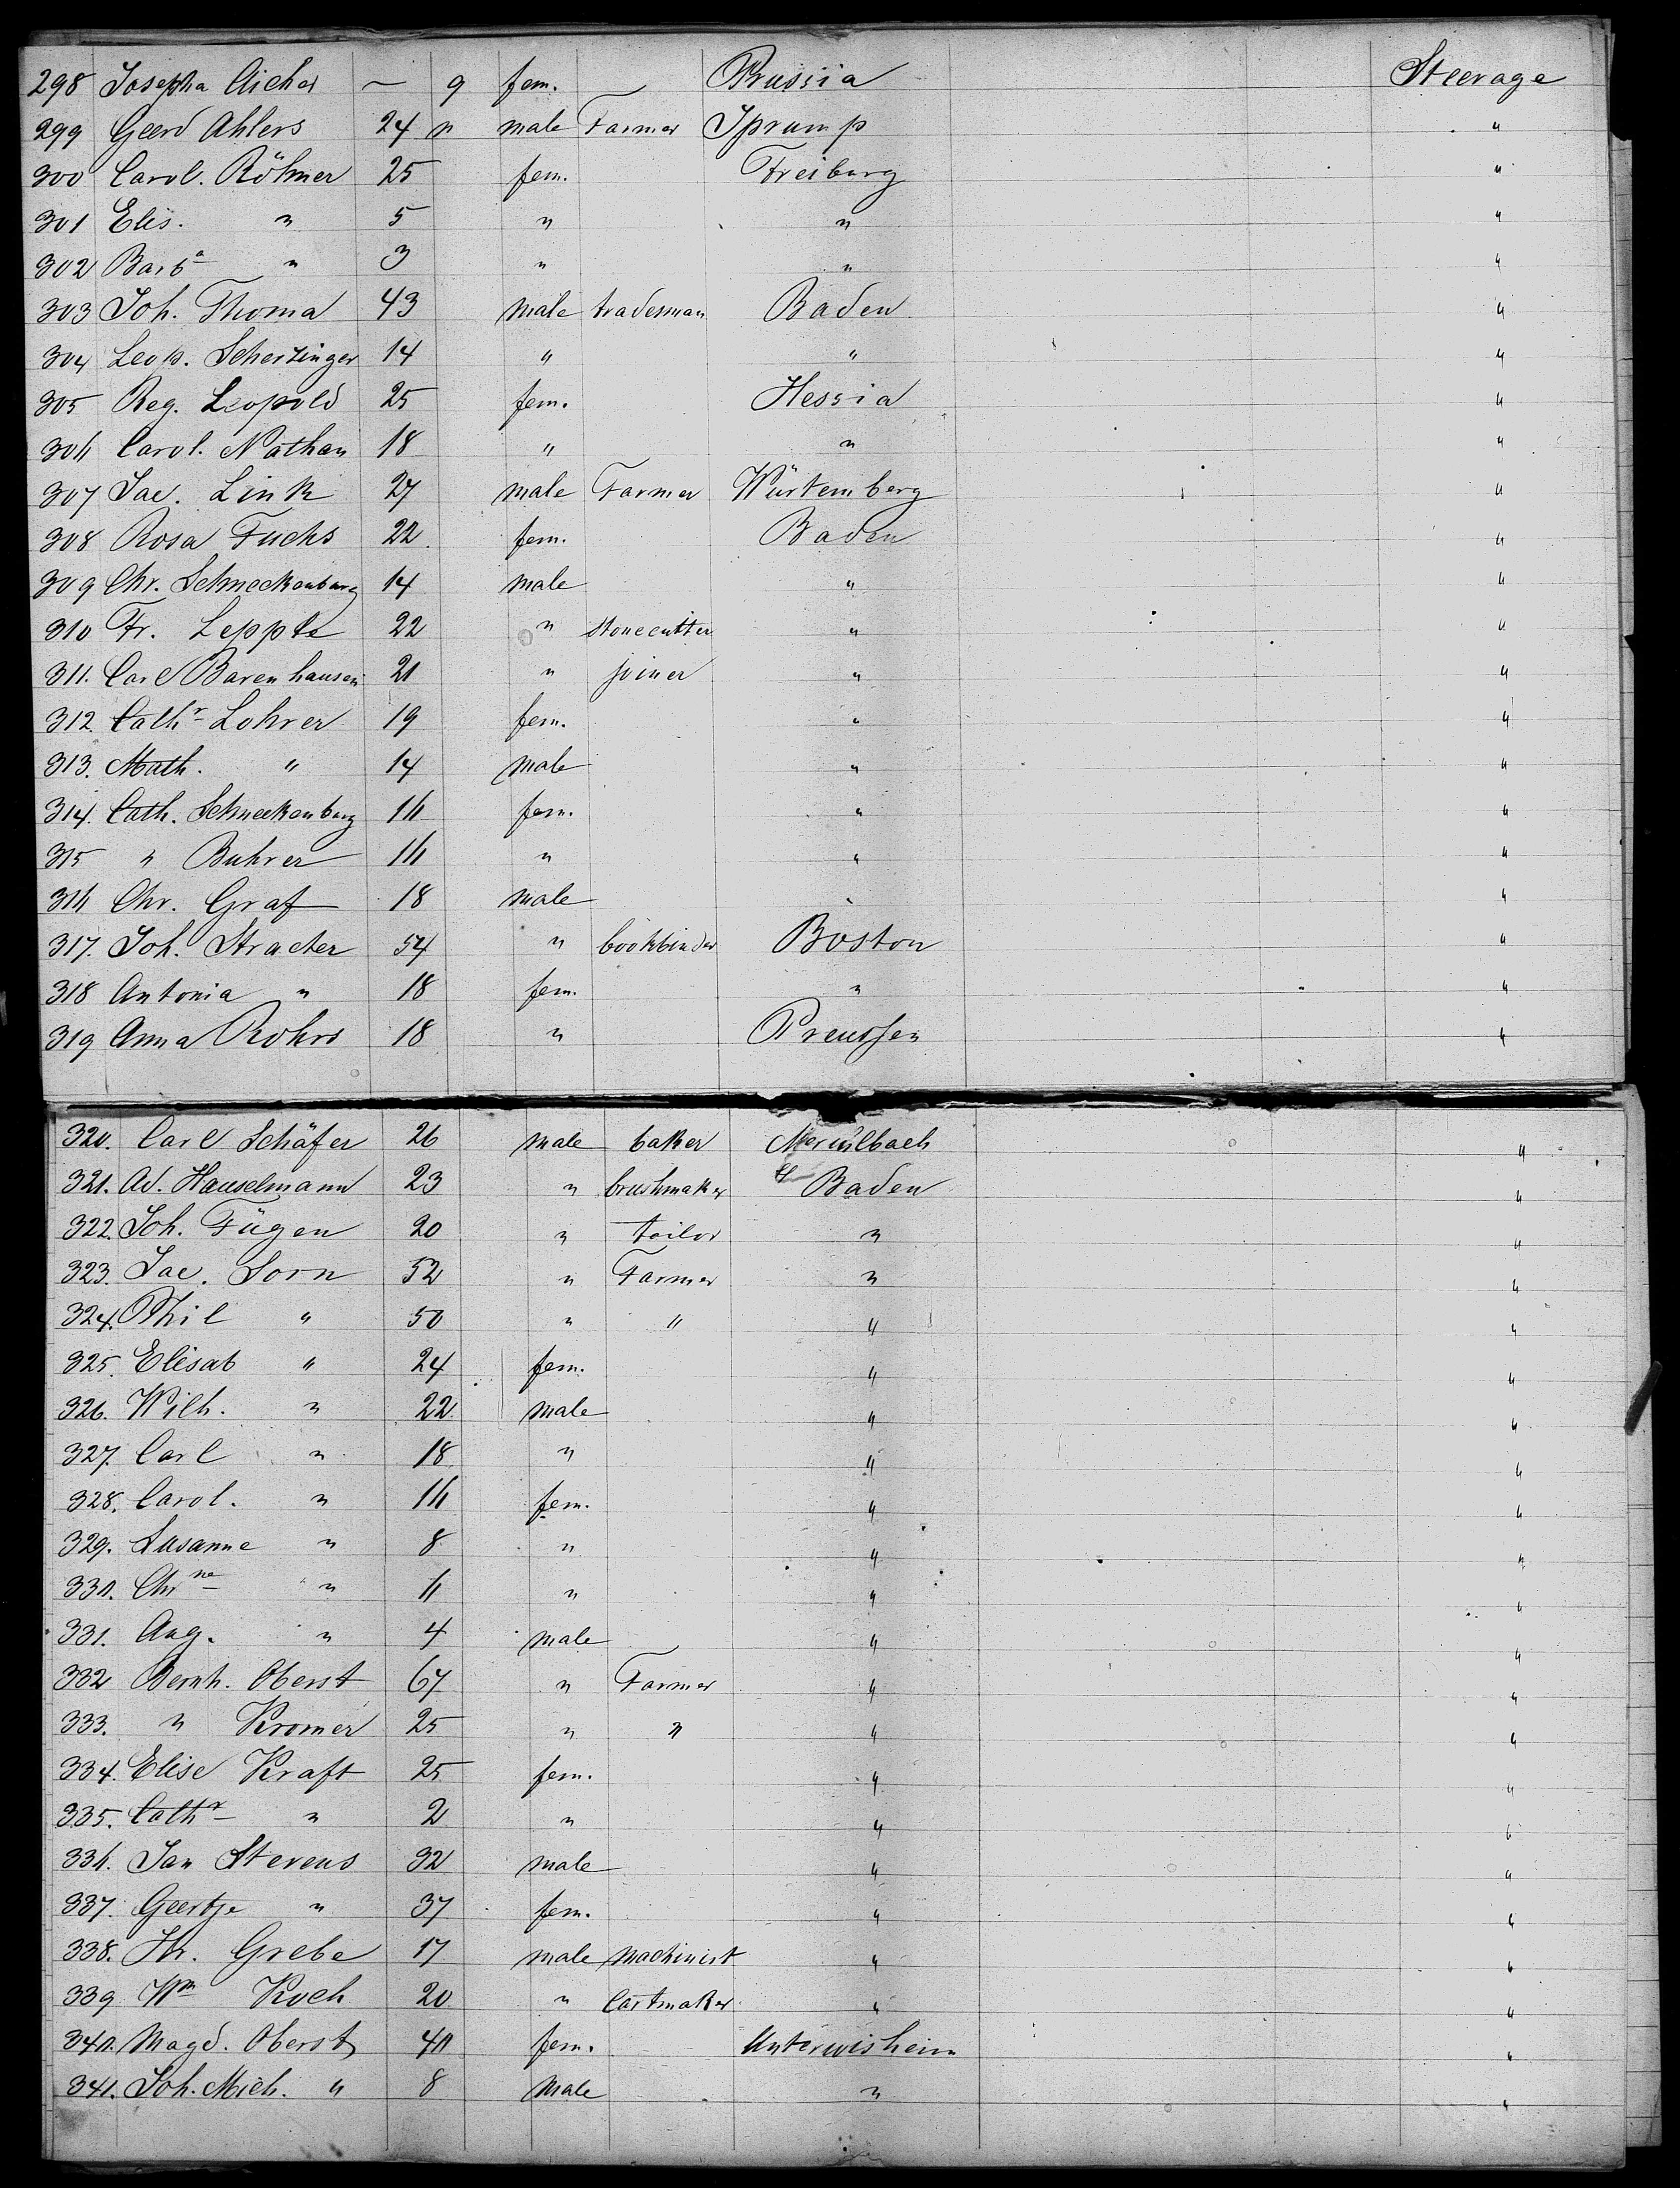 298 Josepha Aicher — 9 fem. Prussia Steerage
299 Geerd Ahlers 24 " male Farmer Iprump "
300 Carol. Röhmer 25 fem. Freiburg "
301 Elis. " 5 " " "
302 Barba " 3 " " "
303 Joh. Thoma 43 male tradesman Baden "
304 Leop. Scherzinger 14 " " "
305 Reg. Leopold 25 fem. Hessia "
306 Carol. Nathan 18 " " "
307 Jac. Link 27 male Farmer Würtemberg "
308 Rosa Fuchs 22 fem. Baden "
309 Chr. Schneckenburg 14 male " "
310 Fr. Lepple 22 " stonecutter " "
311. Carl Barenhausen 21 " joiner " "
312. Cathr Lohrer 19 fem. " "
313. Math. " 14 male " "
314. Cath. Schneckenburg 16 fem. " "
315 " Buhrer 16 " " "
316 Chr. Graf 18 male " "
317. Joh. Stracter 54 " bookbinder Boston "
318 Antonia " 18 fem. " "
319 Anna Rohrs 18 " Preussen "
320. Carl Schäfer 26 male baker "
321. Ad. Hauselmann 23 " brushmaker Baden "
322. Joh. Fügen 20 " tailor " "
323. Jac. Sorn 52 " Farmer " "
324. Phil " 50 " " " "
325. Elisab " 24 fem. " "
326. Wilh. " 22 male " "
327. Carl " 18 " " "
328. Carol. " 16 fem. " "
329. Susanne " 8 " " "
330. Chrne " 6 " " "
331. Aug. " 4 male " "
332 Bernh. Oberst 67 " Farmer " "
333. " Kromer 25 " " " "
334. Elise Kraft 25 fem. " "
335. Cathr " 2 " " "
336. Jan Stevens 32 male " "
337. Geertje " 37 fem. " "
338. Fr. Grebe 17 male machinist " "
339 Wm Koch 20 " Cartmaker " "
340. Magd. Oberst 40 fem. Unterwisheim "
341. Joh. Mich. " 8 male " "